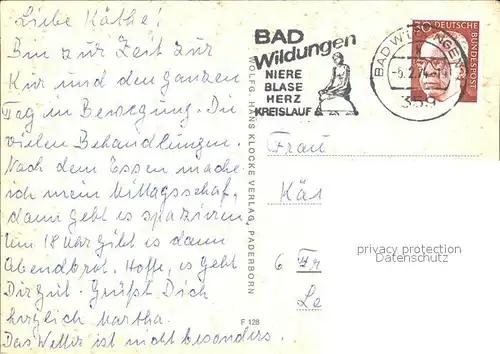 Liebe Käthe!
Bin zur Zeit zur
Kur und den ganzen
Tag in Bewegung. Die
vielen Behandlungen.
Nach dem Essen mache
ich mein Mittagsschaf,
dann geht es spaziren
Um 18 Uhr gibt es dann
Abendbrot. Hoffe, es geht
Dir gut. Grüßt Dich
herzlich Martha.
Das Wetter ist nicht besonders.
BAD
Wildungen
NIERE
BLASE
HERZ
KREISLAUF
BAD WILDUNGEN
-6.2.74
359
30 DEUTSCHE BUNDESPOST
WOLFG. HANS KLOCKE VERLAG, PADERBORN
F 128
Frau
Kät
6 Fr
Le
privacy protection
Datenschutz